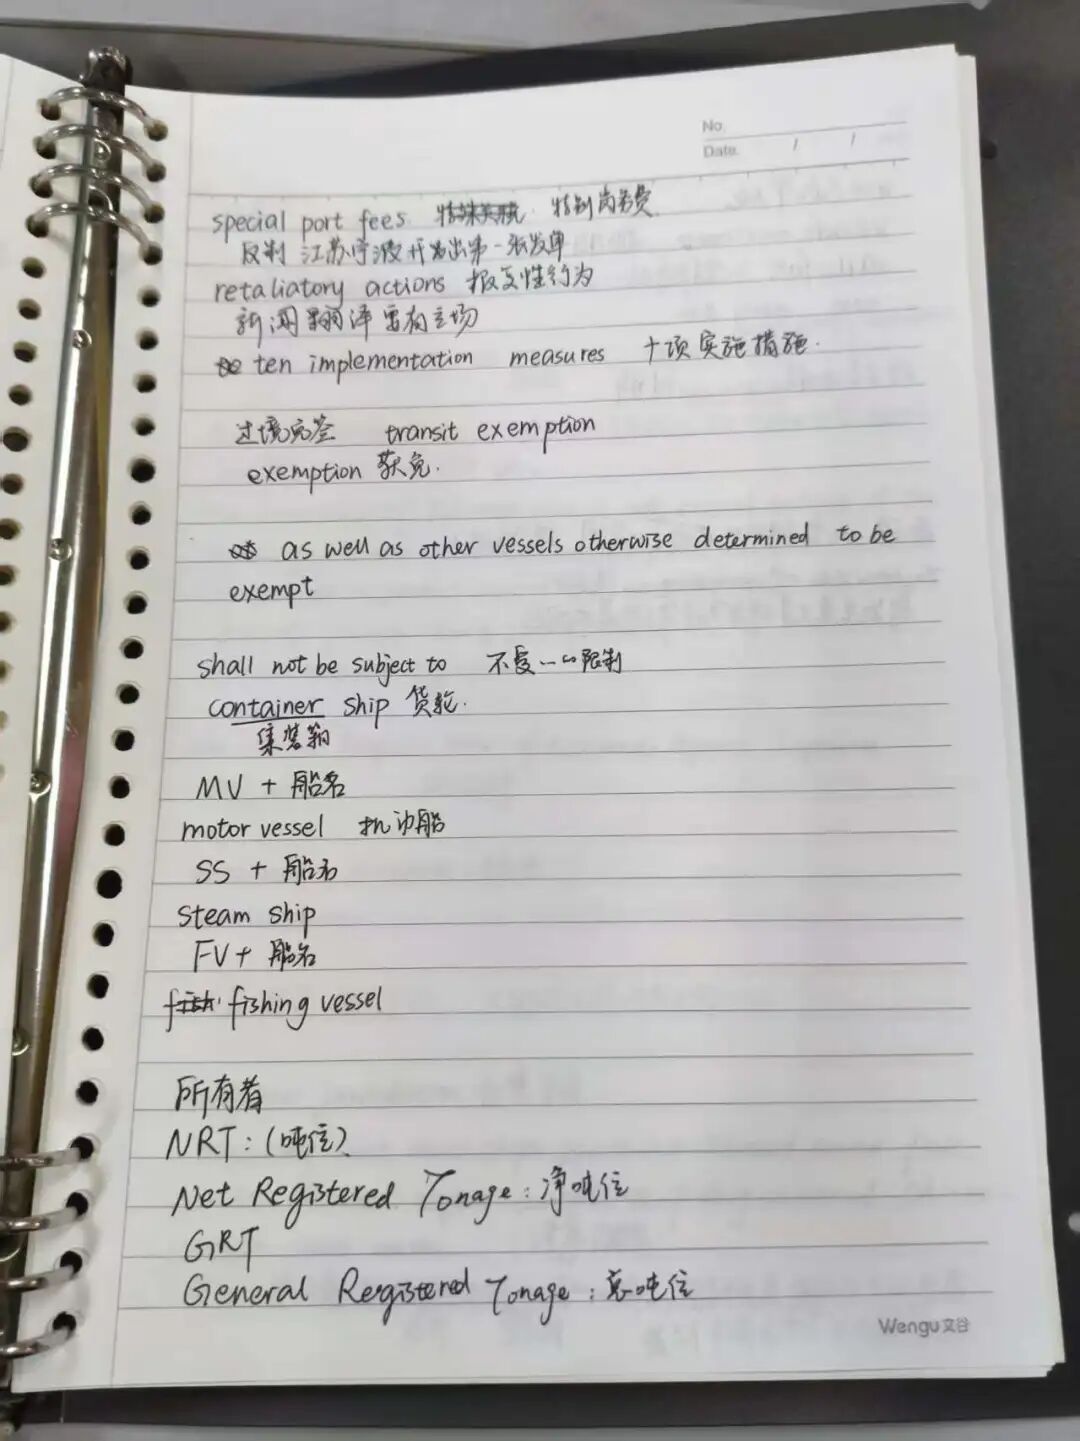 No.
Date. / /
special port fees 特别岗务费
反制 江苏宁波开出第一张发单
retaliatory actions 报复性行为
新闻翻译要有立场
ten implementation measures 十项实施措施.
过境完签 transit exemption
exemption 获免.
as well as other vessels otherwise determined to be
exempt
shall not be subject to 不受…的限制
container ship 货轮.
集装箱
MV + 船名
motor vessel 机动船
SS + 船名
steam ship
FV + 船名
fishing vessel
所有者
NRT: (吨位)
Net Registered Tonage: 净吨位
GRT
General Registered Tonage: 总吨位
Wengu 文谷